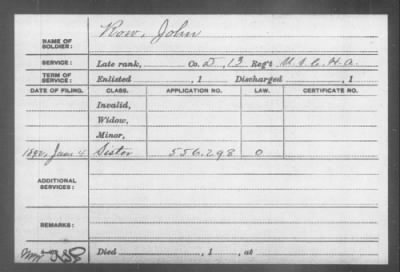 NAME OF SOLDIER: Row, John
SERVICE: Late rank, Co. D, 13 Reg't U.S.C.H.A.
TERM OF SERVICE: Enlisted , 1 Discharged , 1
DATE OF FILING. CLASS. APPLICATION NO. LAW. CERTIFICATE NO.
Invalid,
Widow,
Minor,
1892, June 4 Sister 556.298 0
ADDITIONAL SERVICES:
REMARKS:
Died , 1 , at